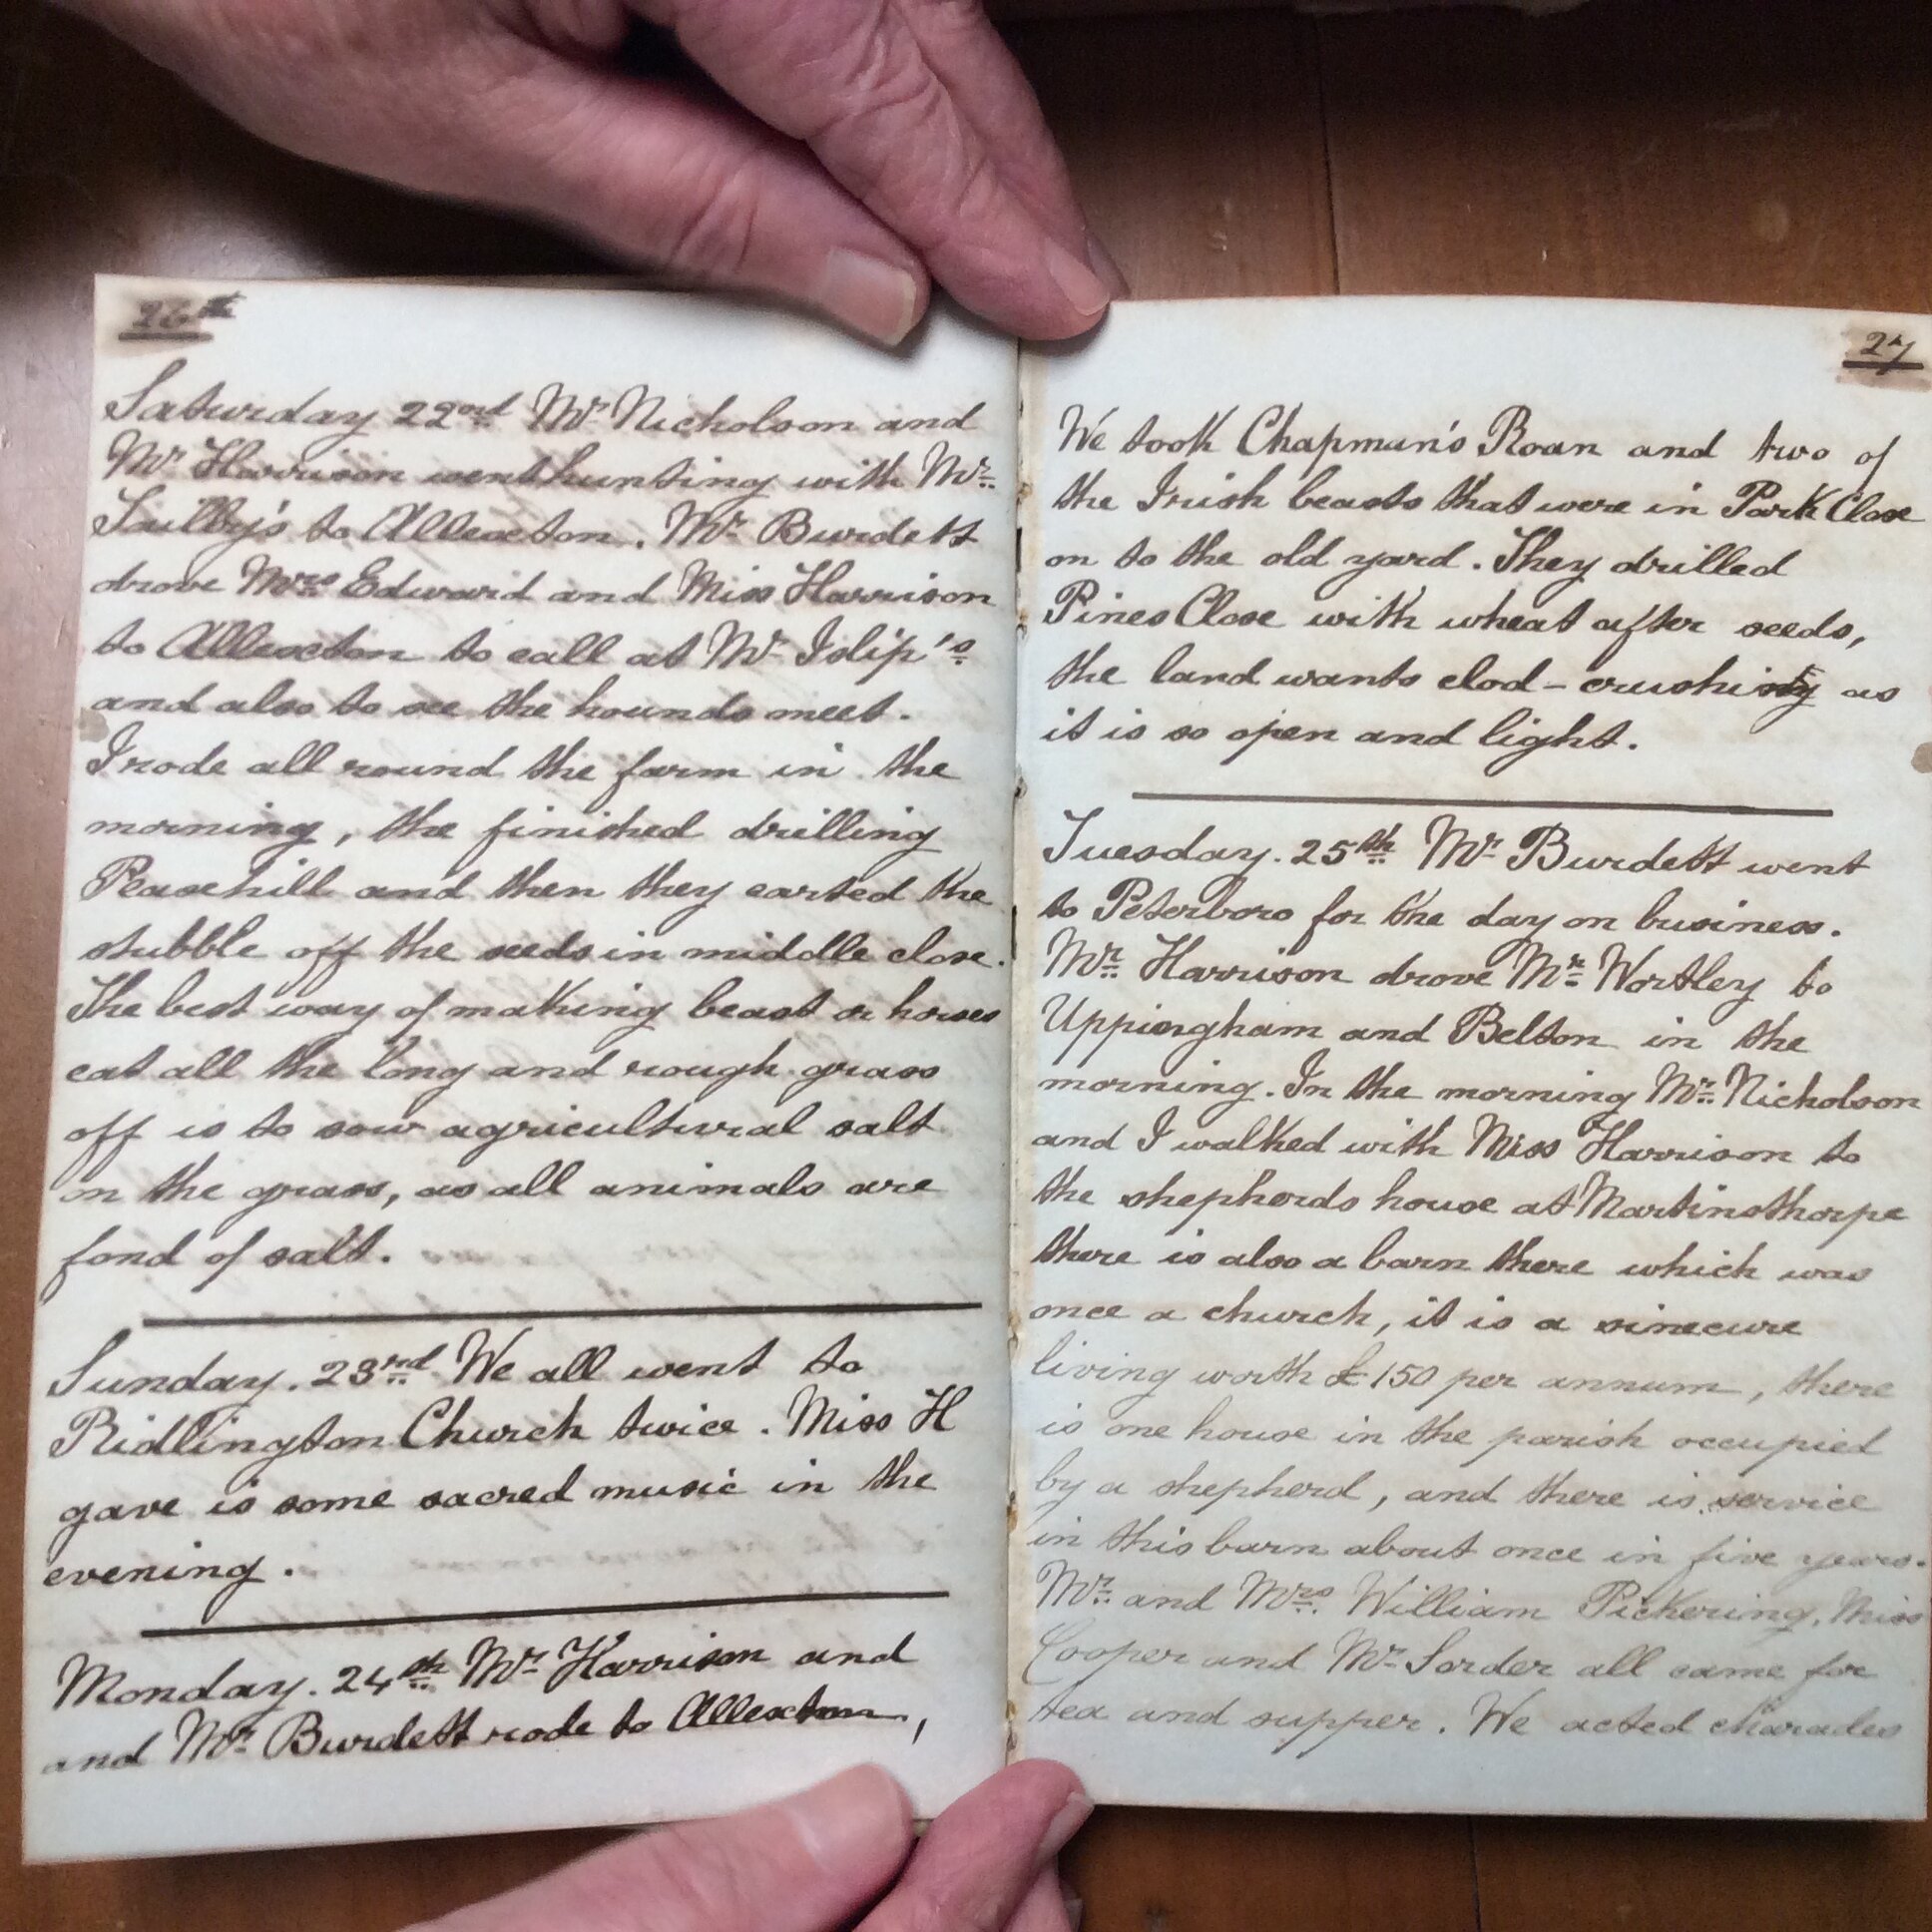 26th
Saturday 22nd Mr Nicholson and
Mr Harrison went hunting with Mr
to Allexton. Mr Burdett
drove Mrs Edward and Miss Harrison
to Allexton to call at Mr Islip's
and also to see the hounds meet.
I rode all round the farm in the
morning, the finished drilling
Peasehill and then they carted the
stubble off the seeds in middle close.
The best way of making beast or horses
eat all the long and rough grass
off is to sow agricultural salt
on the grass, as all animals are
fond of salt.
Sunday. 23rd We all went to
Ridlington Church twice. Miss H
gave is some sacred music in the
evening.
Monday. 24th Mr Harrison and
and Mr Burdett rode to Allexton,
27
We took Chapman's Roan and two of
the Irish beasts that were in Park Close
on to the old yard. They drilled
Pines Close with wheat after seeds,
the land wants clod-crushing as
it is so open and light.
Tuesday. 25th Mr Burdett went
to Peterboro for the day on business.
Mr Harrison drove Mr Wortley to
Uppingham and Belton in the
morning. In the morning Mr Nicholson
and I walked with Miss Harrison to
the shepherds house at Martinsthorpe
there is also a barn there which was
once a church, it is a sinecure
living worth £150 per annum, there
is one house in the parish occupied
by a shepherd, and there is service
in this barn about once in five years.
Mr and Mrs William Pickering, Miss
Cooper and Mr Sorder all came for
tea and supper. We acted charades